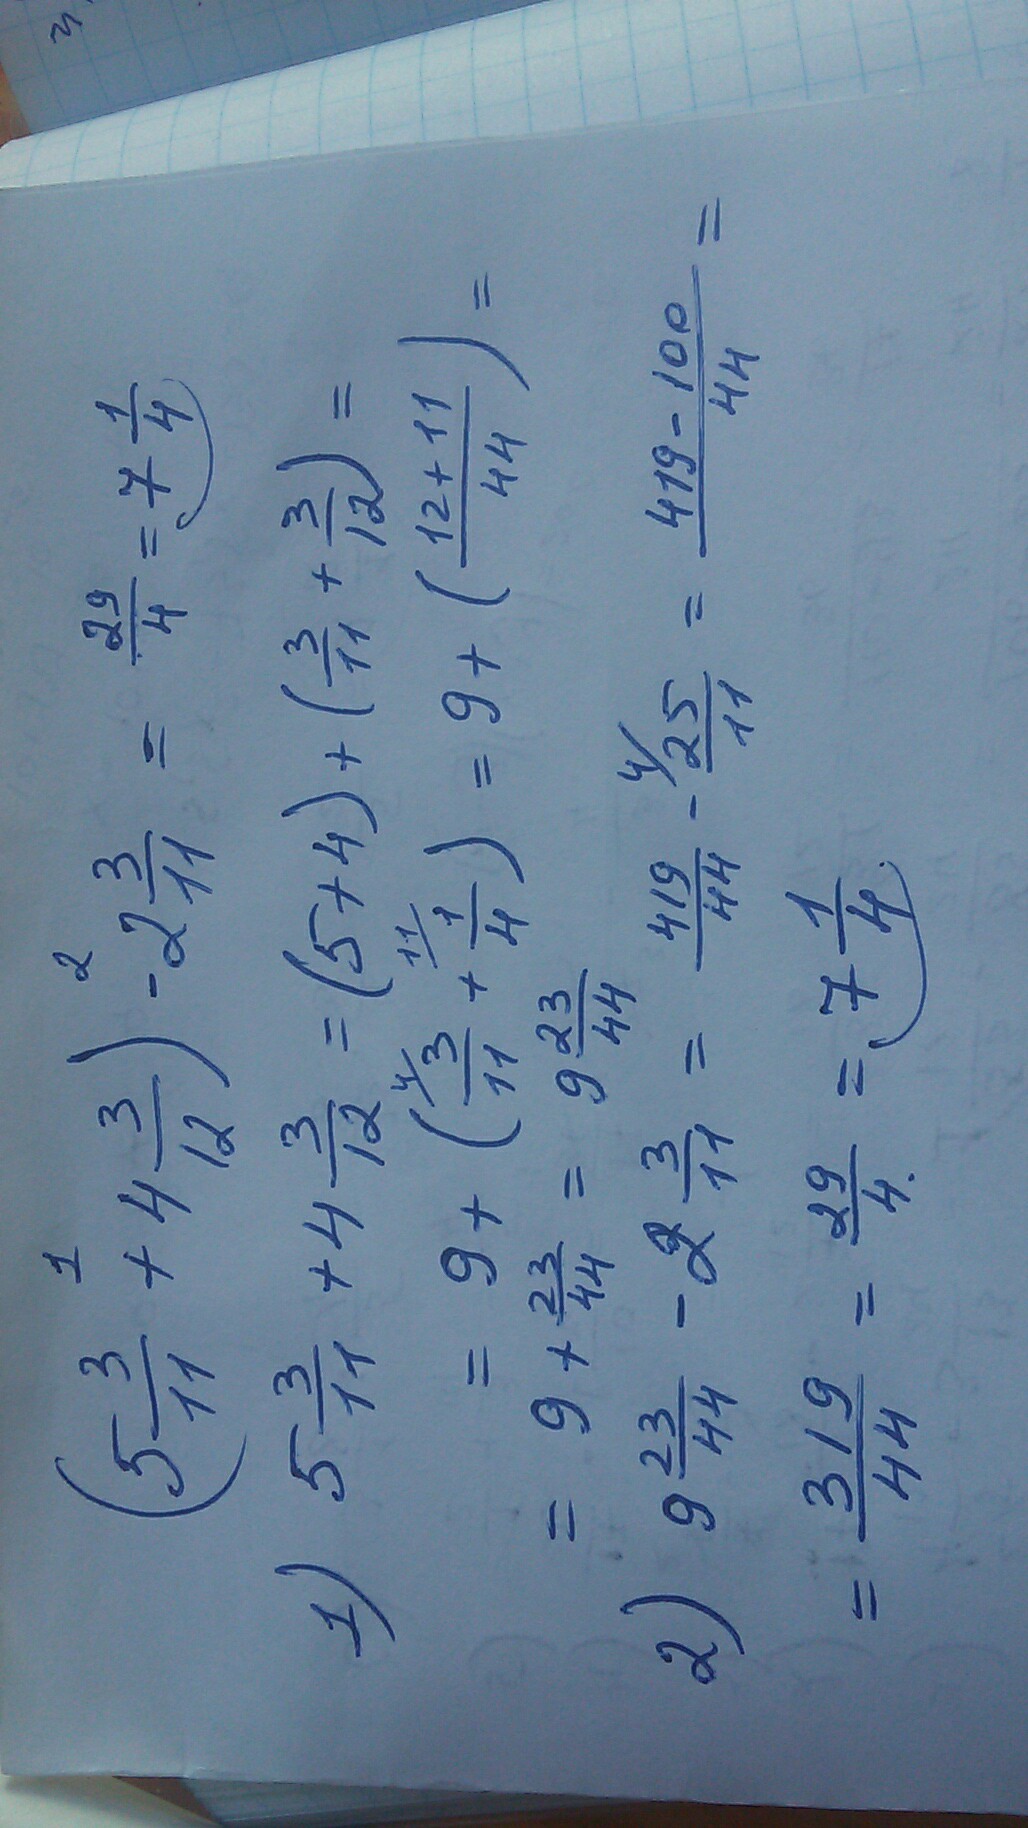 (5 3/11 +¹ 4 3/12) -² 2 3/11 = 29/4 = 7 1/4
1) 5 3/11 + 4 3/12 = (5+4) + (3/11 + 3/12) =
= 9 + (⁴⁄3/11 + ¹¹⁄1/4) = 9 + (12+11/44) =
= 9 + 23/44 = 9 23/44
2) 9 23/44 - 2 3/11 = 419/44 - ⁴⁄25/11 = 419-100/44 =
= 319/44 = 29/4 = 7 1/4.